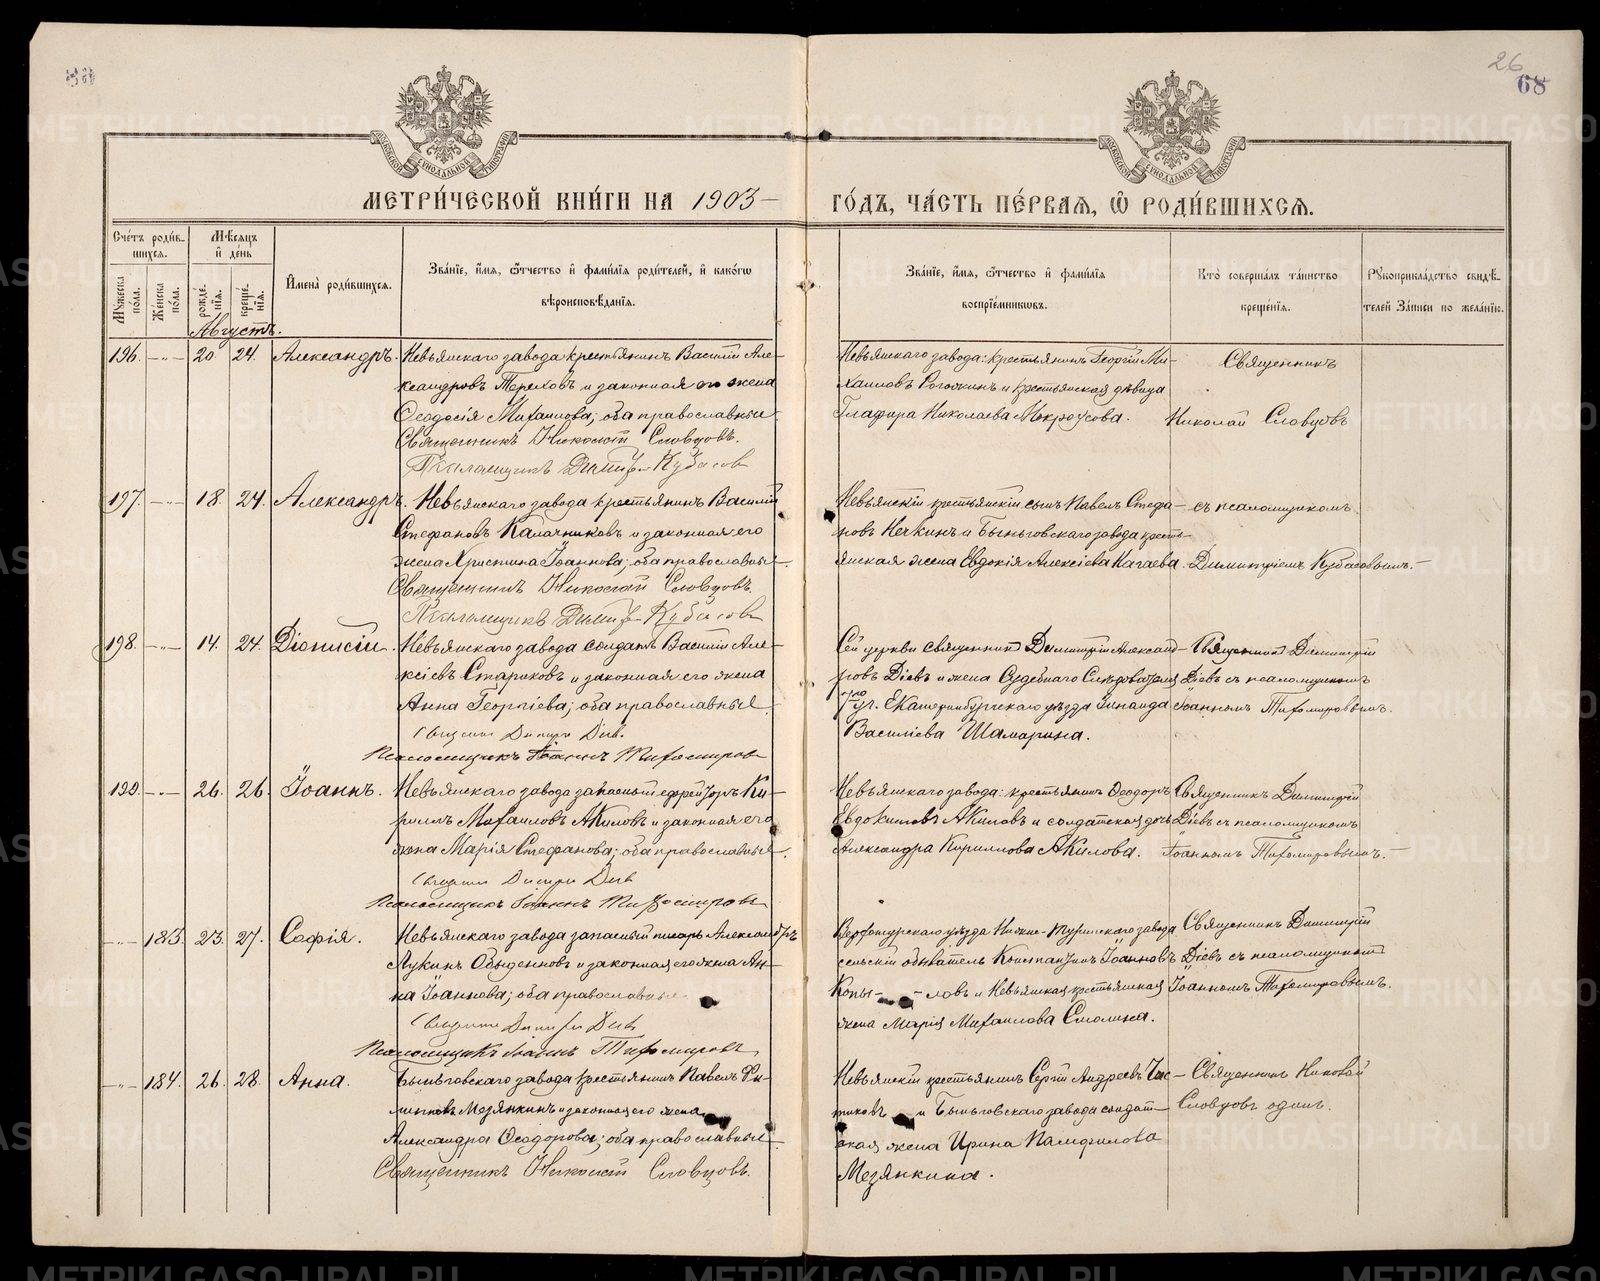 26
68
МОСКОВСКОЙ СѴНОДАЛЬНОЙ ТИПОГРАФІИ
МОСКОВСКОЙ СѴНОДАЛЬНОЙ ТИПОГРАФІИ
МЕТРИ́ЧЕСКОЙ КНИ́ГИ НА 1903 ГО́ДЪ, ЧА́СТЬ ПЕ́РВАѦ, Ѽ РОДИ́ВШИХСѦ.
Сче́тъ роди́вшихся.
Мꙋжеска по́ла.
Же́нска по́ла.
Мѣ́сяцъ и҆ де́нь
рожде́нїя.
креще́нїя.
И҆мена̀ роди́вшихся.
Зва́нїе, и҆́мя, ѻ҆́тчество и҆ фами́лїя роди́телей, и҆ како́гѡ вѣроисповѣ́данїя.
Зва́нїе, и҆́мя, ѻ҆́тчество и҆ фами́лїя воспрїе́мниковъ.
Кто̀ соверша́лъ та́инство креще́нїя.
Рꙋкоприкла́дство свидѣ́телей за́писи по жела́нїю.
Августъ.
196. 20 24. Александръ.
Невьянскаго завода крестьянинъ Василій Але-
ксандровъ Тереховъ и законная его жена
Ѳеодосія Михаилова; оба православные.
Священникъ Николай Словцовъ.
Псаломщикъ Димитр. Кубасовъ
Невьянскаго завода: крестьянинъ Георгій Ми-
хаиловъ Рогожинъ и крестьянская дѣвица
Глафира Николаева Мокроусова.
Священникъ
Николай Словцовъ
197. 18. 24. Александръ.
Невьянскаго завода крестьянинъ Василій
Стефановъ Калачниковъ и законная его
жена Христина Іоаннова; оба православные.
Священникъ Николай Словцовъ.
Псаломщикъ Димитр. Кубасовъ
Невьянскій крестьянскій сынъ Павелъ Стефа-
новъ Нечкинъ и Быньговскаго завода кресть-
янская жена Евдокія Алексіева Нагаева.
съ псаломщикомъ
Димитріемъ Кубасовымъ.
198. 14. 24. Діонисій.
Невьянскаго завода солдатъ Василій Але-
ксіевъ Стариковъ и законная его жена
Анна Георгіева; оба православные.
Священ. Димитр. Діевъ.
Псаломщикъ Іоаннъ Тихомировъ
Сей церкви священникъ Димитрій Александ-
ровъ Діевъ и жена Судебнаго Слѣдователя
7го уч. Екатеринбургскаго уѣзда Зинаида
Василіева Шамарина.
Священникъ Димитрій
Діевъ съ псаломщикомъ
Іоанномъ Тихомировымъ.
199. 26. 26. Іоаннъ.
Невьянскаго завода запасный ефрейторъ Ки-
риллъ Михаиловъ Акиловъ и законная его
жена Марія Стефанова; оба православные.
Священ. Димитр. Діевъ
Псаломщикъ Іоаннъ Тихомировъ
Невьянскаго завода: крестьянинъ Ѳеодоръ
Евдокимовъ Акиловъ и солдатская дочь
Александра Кириллова Акилова.
Священникъ Димитрій
Діевъ съ псаломщикомъ
Іоанномъ Тихомировымъ.
183. 23. 27. Софія.
Невьянскаго завода запасный писарь Александръ
Лукинъ Обыденновъ и законная его жена Ан-
на Іоаннова; оба православные.
Священ. Димитр. Діевъ
Псаломщикъ Іоаннъ Тихомировъ
Верхотурскаго уѣзда Нижне-Туринскаго завода
сельскій обыватель Константинъ Іоанновъ
Копы- -ловъ и Невьянская крестьянская
жена Марія Михаилова Смолина.
Священникъ Димитрій
Діевъ съ псаломщикомъ
Іоанномъ Тихомировымъ.
184. 26. 28. Анна.
Быньговскаго завода крестьянинъ Павелъ Фи-
липповъ Мезянкинъ и законная его жена
Александра Ѳеодорова; оба православные.
Священникъ Николай Словцовъ.
Невьянскій крестьянинъ Сергій Андреевъ Час-
тиковъ и Быньговскаго завода солдат-
ская жена Ирина Памфилова
Мезянкина.
Священникъ Николай
Словцовъ одинъ.